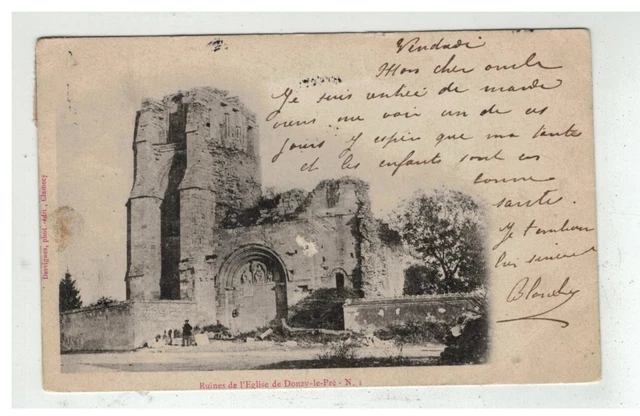 Vendredi
Mon cher oncle
Je suis entrée de mardi
viens me voir un de ces
jours j'espère que ma tante
et les enfants sont en
bonne
santé.
Je t'embrasse
bien
Blanche
Devignes, phot. édit., Clamecy
Ruines de l'Eglise de Donzy-le-Pré - N. 1